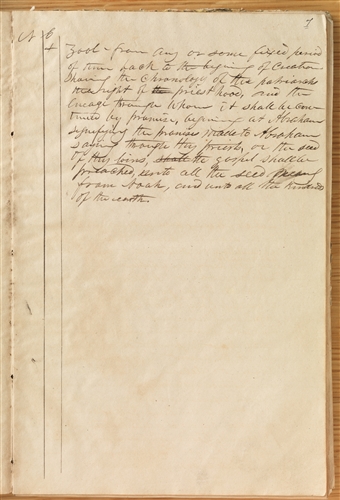 7
N. 6
+ Zool - from any or some fixed period
of time back to the begining of Creation
Shewing the chronology of the patriarchs
the right of the priest hood, and the
lineage through whom it shall be con
tinued by promise, begining at Abraham
signifying the promises made to Abraham
saying through thy priesthood, or the seed
of thy loins, shall the gospel shall be
preached, unto all the seed,
from Noah, and unto all the kindreds
of the earth.